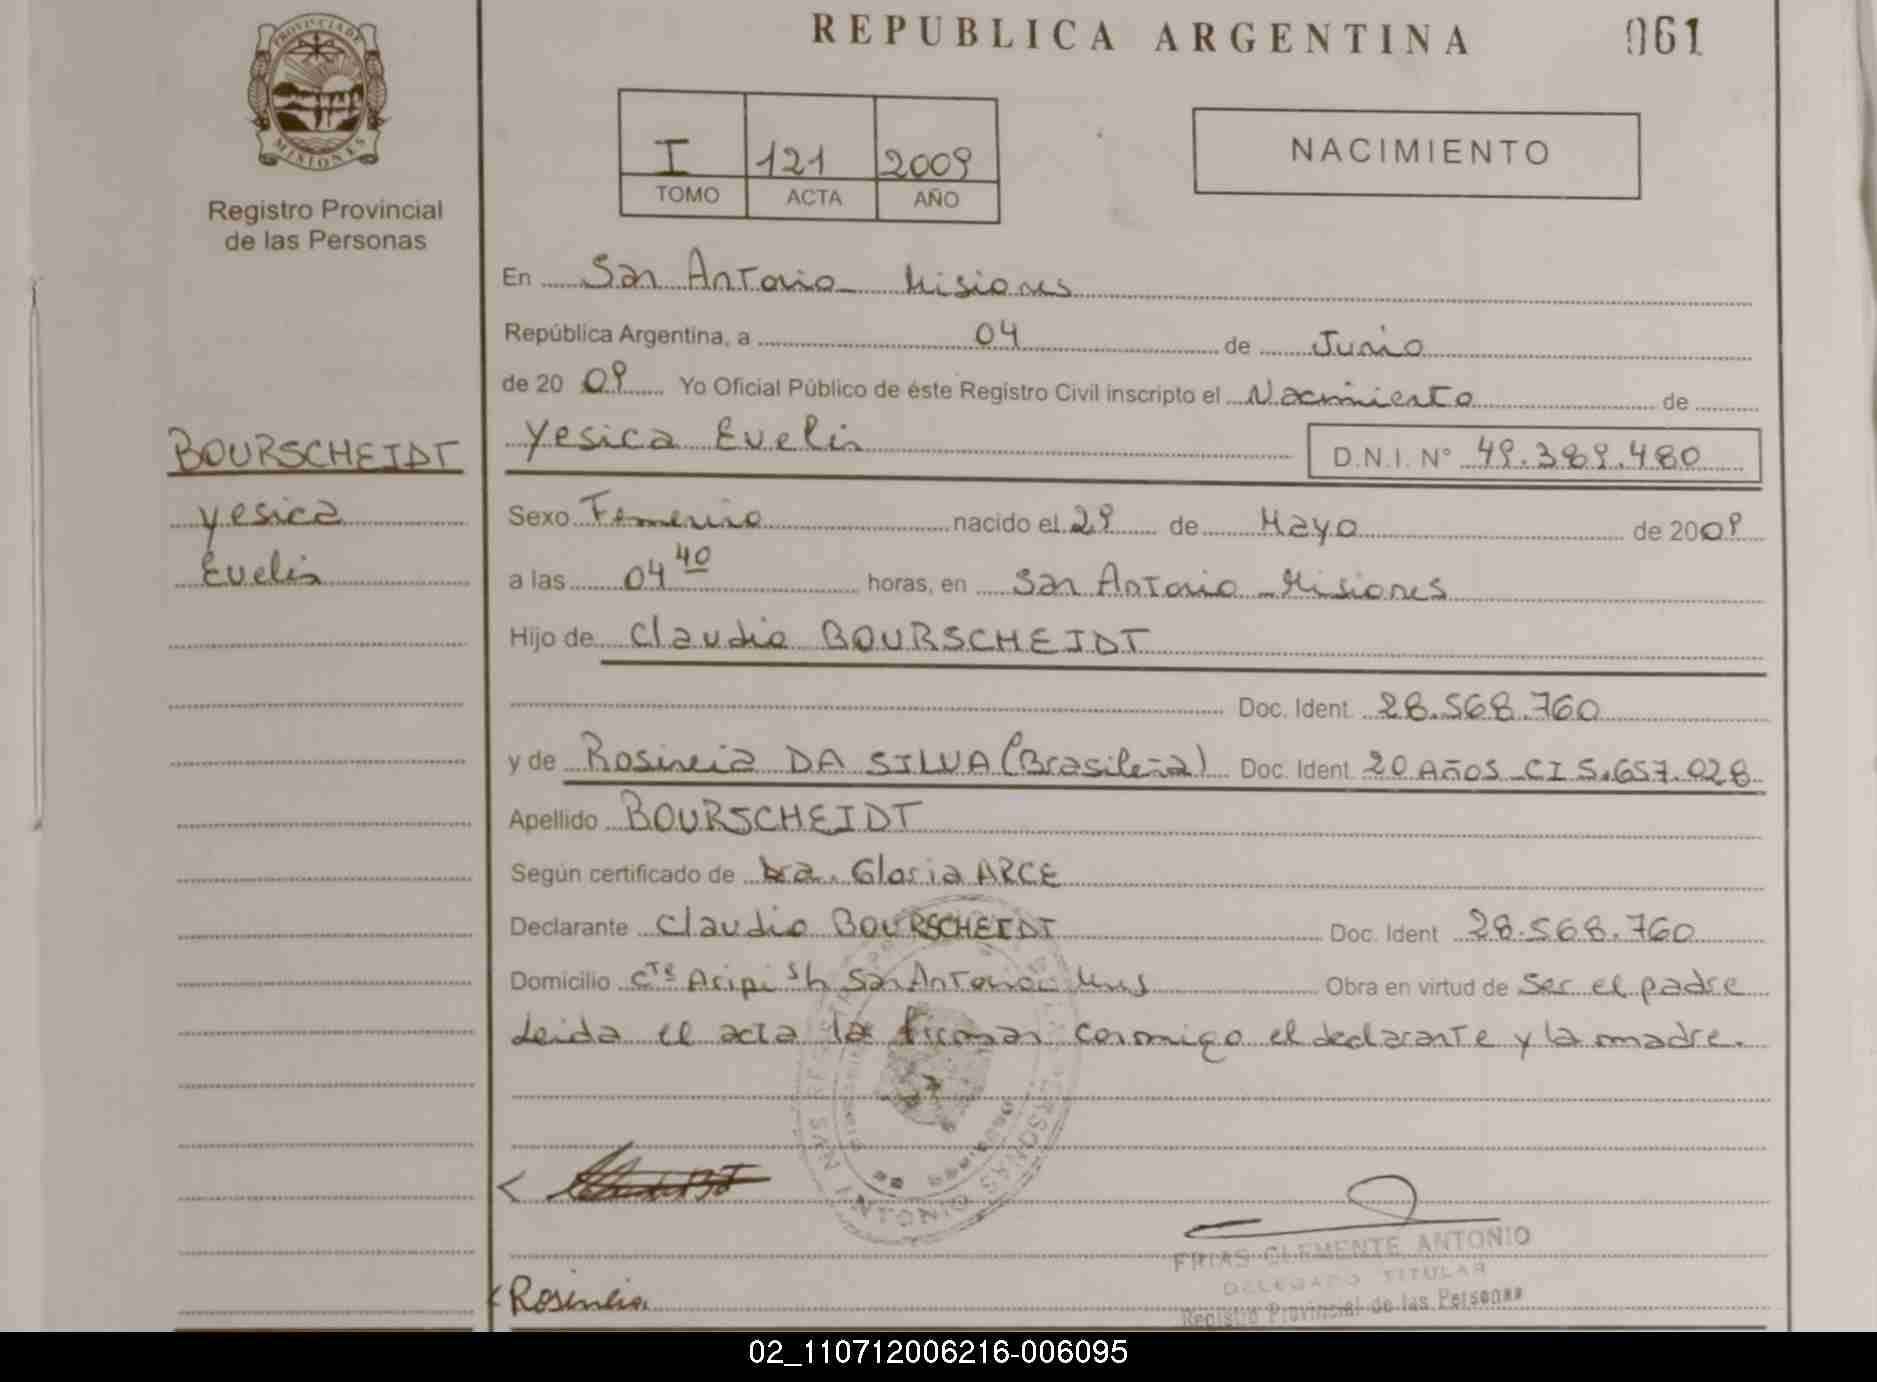 REPUBLICA ARGENTINA
061
PROVINCIA DE
MISIONES
Registro Provincial
de las Personas
I 121 2009
TOMO ACTA AÑO
NACIMIENTO
En San Antonio Misiones
República Argentina, a 04 de Junio
de 20 09 Yo Oficial Público de éste Registro Civil inscripto el Nacimiento de
Yesica Evelin D.N.I. N° 49.389.480
BOURSCHEIDT
Yesica
Evelin
Sexo Femenino nacido el 29 de Mayo de 2009
a las 04 40 horas, en San Antonio - Misiones
Hijo de Claudio BOURSCHEIDT
Doc. Ident. 28.568.760
y de Rosineia DA SILVA (Brasileña) Doc. Ident. 20 Años - CI 5.657.028
Apellido BOURSCHEIDT
Según certificado de Dra. Gloria ARCE
Declarante Claudio BOURSCHEIDT Doc. Ident 28.568.760
Domicilio Cte Aripi s/n San Antonio Mnes Obra en virtud de Ser el padre
Leida el acta la firman conmigo el declarante y la madre.
Rosineia
FRIAS CLEMENTE ANTONIO
DELEGADO TITULAR
Registro Provincial de las Personas
02_110712006216-006095